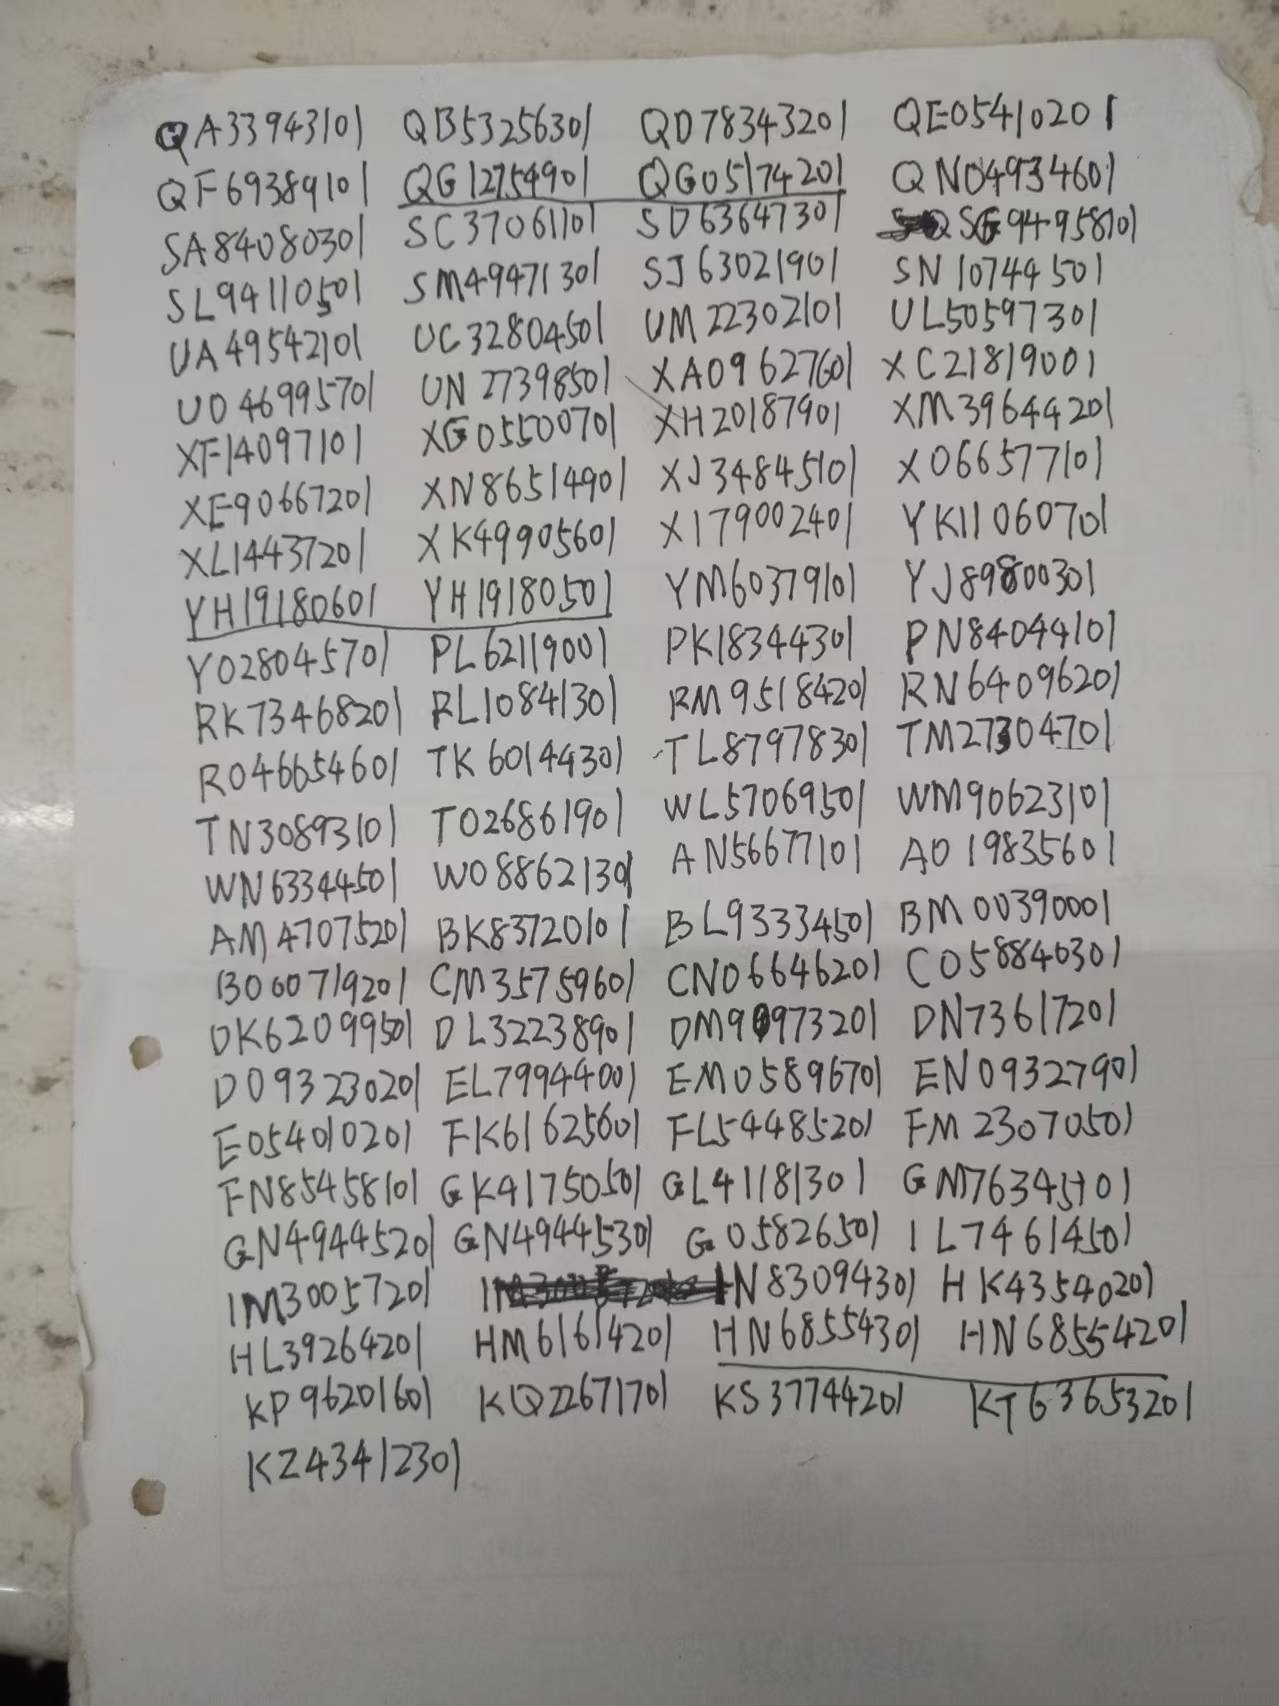 QA33943101 QB53256301 QD78343201 QE05410201
QF69389101 QG12754901 QG05174201 QN04934601
SA84080301 SC37061101 SD63647301 SG94958101
SL94110501 SM49471301 SJ63021901 SN10744501
UA49542101 UC32804501 UM22302101 UL50597301
UO46995701 UN27398501 XA09627601 XC21819001
XF14097101 XG05500701 XH20187901 XM39644201
XE90667201 XN86514901 XJ34845101 XO66577101
XL14437201 XK49905601 XI79002401 YK11060701
YH19180601 YH19180501 YM60379101 YJ89800301
YO28045701 PL62119001 PK18344301 PN84044101
RK73468201 RL10841301 RM95184201 RN64096201
RO46654601 TK60144301 TL87978301 TM27304701
TN30893101 TO26861901 WL57069501 WM90623101
WN63344501 WO88621301 AN56677101 AO19835601
AM47075201 BK83720101 BL93334501 BM00390001
BO00719201 CM35759601 CN06646201 CO58840301
DK62099501 DL32238901 DM90973201 DN73617201
DO93230201 EL79944001 EM05896701 EN09327901
EO54010201 FK61625601 FL54485201 FM23070501
FN85458101 GK41750501 GL41181301 GM76345101
GN49445201 GN49445301 GO5826501 IL74614501
IM30057201 IN83094301 HK43540201
HL39264201 HM61614201 HN68554301 HN68554201
KP96201601 KQ22671701 KS37744201 KT63653201
KZ43412301